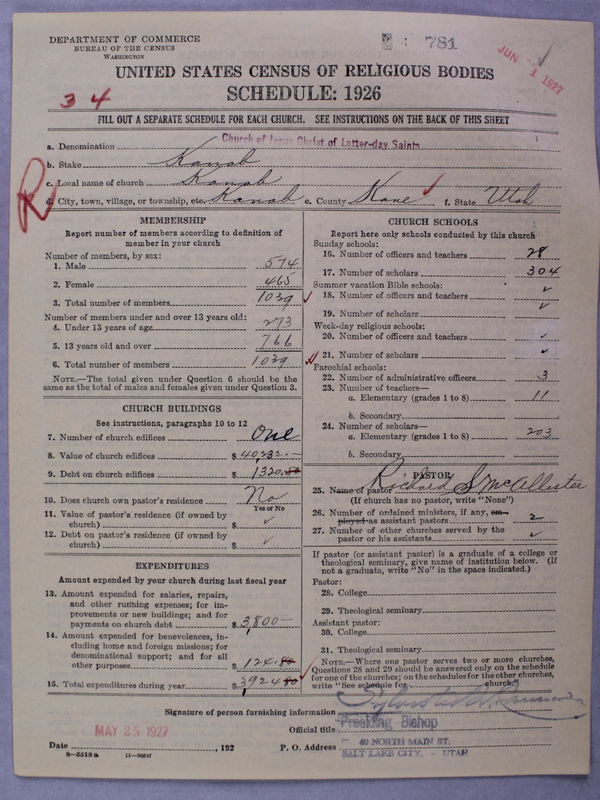 DEPARTMENT OF COMMERCE
BUREAU OF THE CENSUS
WASHINGTON
4 781
JUN 1 1927
UNITED STATES CENSUS OF RELIGIOUS BODIES
SCHEDULE: 1926
3 4
FILL OUT A SEPARATE SCHEDULE FOR EACH CHURCH. SEE INSTRUCTIONS ON THE BACK OF THIS SHEET
a. Denomination Church of Jesus Christ of Latter-day Saints
b. Stake Kanab
c. Local name of church Kanab
R
d. City, town, village, or township, etc. Kanab e. County Kane f. State Utah
MEMBERSHIP
Report number of members according to definition of member in your church
Number of members, by sex:
1. Male 574
2. Female 465
3. Total number of members 1039
Number of members under and over 13 years old:
4. Under 13 years of age 273
5. 13 years old and over 766
6. Total number of members 1039
NOTE.—The total given under Question 6 should be the same as the total of males and females given under Question 3.
CHURCH BUILDINGS
See instructions, paragraphs 10 to 12
7. Number of church edifices One
8. Value of church edifices $ 40,232.—
9. Debt on church edifices $ 1320.80
10. Does church own pastor's residence No
Yes or No
11. Value of pastor's residence (if owned by church) $ ✓
12. Debt on pastor's residence (if owned by church) $ ✓
EXPENDITURES
Amount expended by your church during last fiscal year
13. Amount expended for salaries, repairs, and other running expenses; for improvements or new buildings; and for payments on church debt $ 3,800—
14. Amount expended for benevolences, including home and foreign missions; for denominational support; and for all other purposes $ 124.80
15. Total expenditures during year $ 3924 80
CHURCH SCHOOLS
Report here only schools conducted by this church
Sunday schools:
16. Number of officers and teachers 28
17. Number of scholars 304
Summer vacation Bible schools:
18. Number of officers and teachers ✓
19. Number of scholars ✓
Week-day religious schools:
20. Number of officers and teachers ✓
21. Number of scholars ✓
Parochial schools:
22. Number of administrative officers 3
23. Number of teachers—
a. Elementary (grades 1 to 8) 11
b. Secondary
24. Number of scholars—
a. Elementary (grades 1 to 8) 203
b. Secondary
PASTOR
25. Name of pastor Richard S McAllister
(If church has no pastor, write "None")
26. Number of ordained ministers, if any, employed as assistant pastors 2
27. Number of other churches served by the pastor or his assistants ✓
If pastor (or assistant pastor) is a graduate of a college or theological seminary, give name of institution below. (If not a graduate, write "No" in the space indicated.)
Pastor:
28. College
29. Theological seminary
Assistant pastor:
30. College
31. Theological seminary
NOTE.—Where one pastor serves two or more churches, Questions 28 and 29 should be answered only on the schedule for one of the churches; on the schedules for the other churches, write "See schedule for church."
Signature of person furnishing information
Official title Presiding Bishop
MAY 25 1927
Date , 192
P. O. Address 40 NORTH MAIN ST.
SALT LAKE CITY, - UTAH
8—5518a